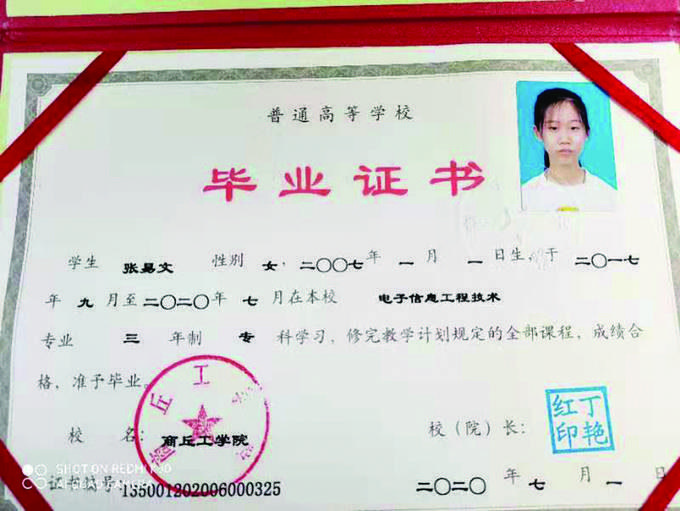 普通高等学校
毕业证书
学生 张易文 性别 女，二〇〇七年 一 月 一 日生，于 二〇一七
年 九 月至二〇二〇年 七 月在本校 电子信息工程技术
专业 三 年制 专 科学习，修完教学计划规定的全部课程，成绩合
格，准予毕业。
丘工
校 名： 商丘工学院
校（院）长：
红丁
印艳
SHOT ON REDMI
证书编号：135001202006000325
二〇二〇 年 七 月 一 日